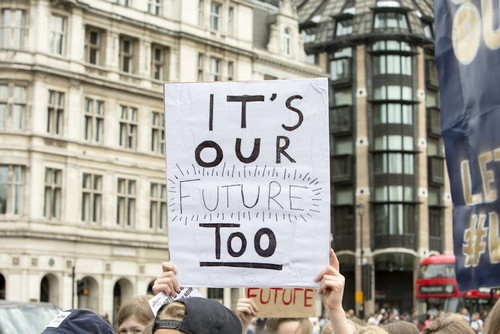 IT'S
OUR
FUTURE
TOO
FUTURE